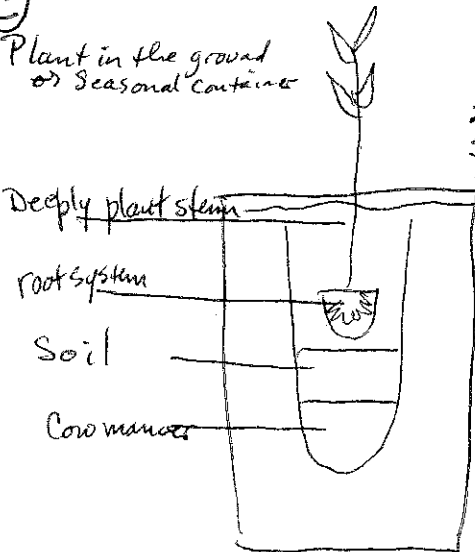 Plant in the ground
or Seasonal container
Deeply plant stem
root system
Soil
Cow manure